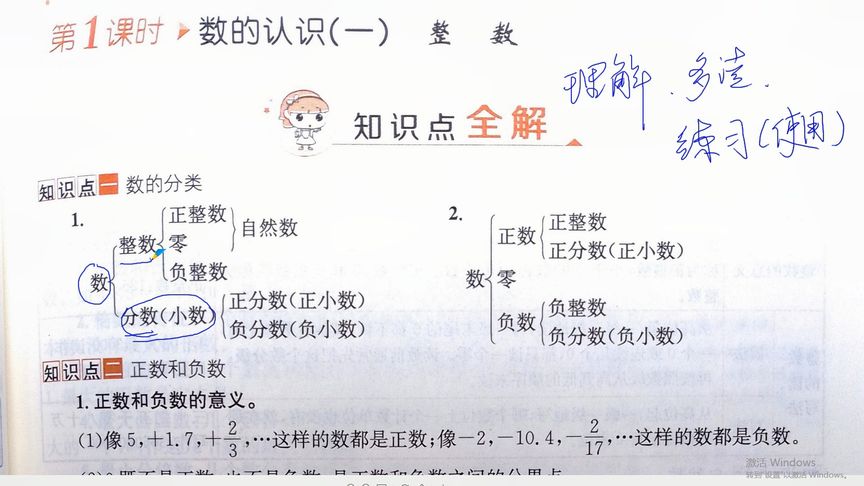 第1课时 数的认识(一) 整 数
理解、多读、
练习(使用)
知识点全解
知识点一 数的分类
1.
数
整数
正整数
零
负整数
自然数
分数(小数)
正分数(正小数)
负分数(负小数)
2.
数
正数
正整数
正分数(正小数)
零
负数
负整数
负分数(负小数)
知识点二 正数和负数
1.正数和负数的意义。
(1)像5,+1.7,+2/3,…这样的数都是正数;像-2,-10.4,-2/17,…这样的数都是负数。
激活 Windows
转到"设置"以激活 Windows。